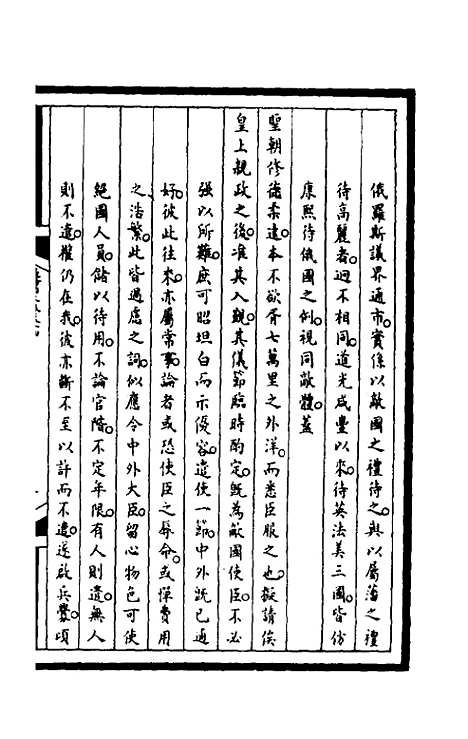 俄羅斯議界通市。實係以敵國之禮待之。與以屬藩之禮
待高麗者。迥不相同。道光咸豐以來。待英法美三國。皆仿
康熙待俄國之例。視同敵體。蓋
聖朝修德柔遠。本不欲胥七萬里之外洋。而悉臣服之也。擬請俟
皇上親政之後。准其入覲。其儀節臨時酌定。既為敵國使臣。不必
强以所難。庶可昭坦白而示優容。遣使一節。中外既已通
好。彼此往來。亦屬常事。論者或恐使臣之辱命。或憚費用
之浩繁。此皆過慮之詞。似應令中外大臣。留心物色可使
絕國人員。儲以待用。不論官階。不定年限。有人則遣。無人
則不遣。權仍在我。彼亦斷不至以許而不遣。遂啟兵釁。頃